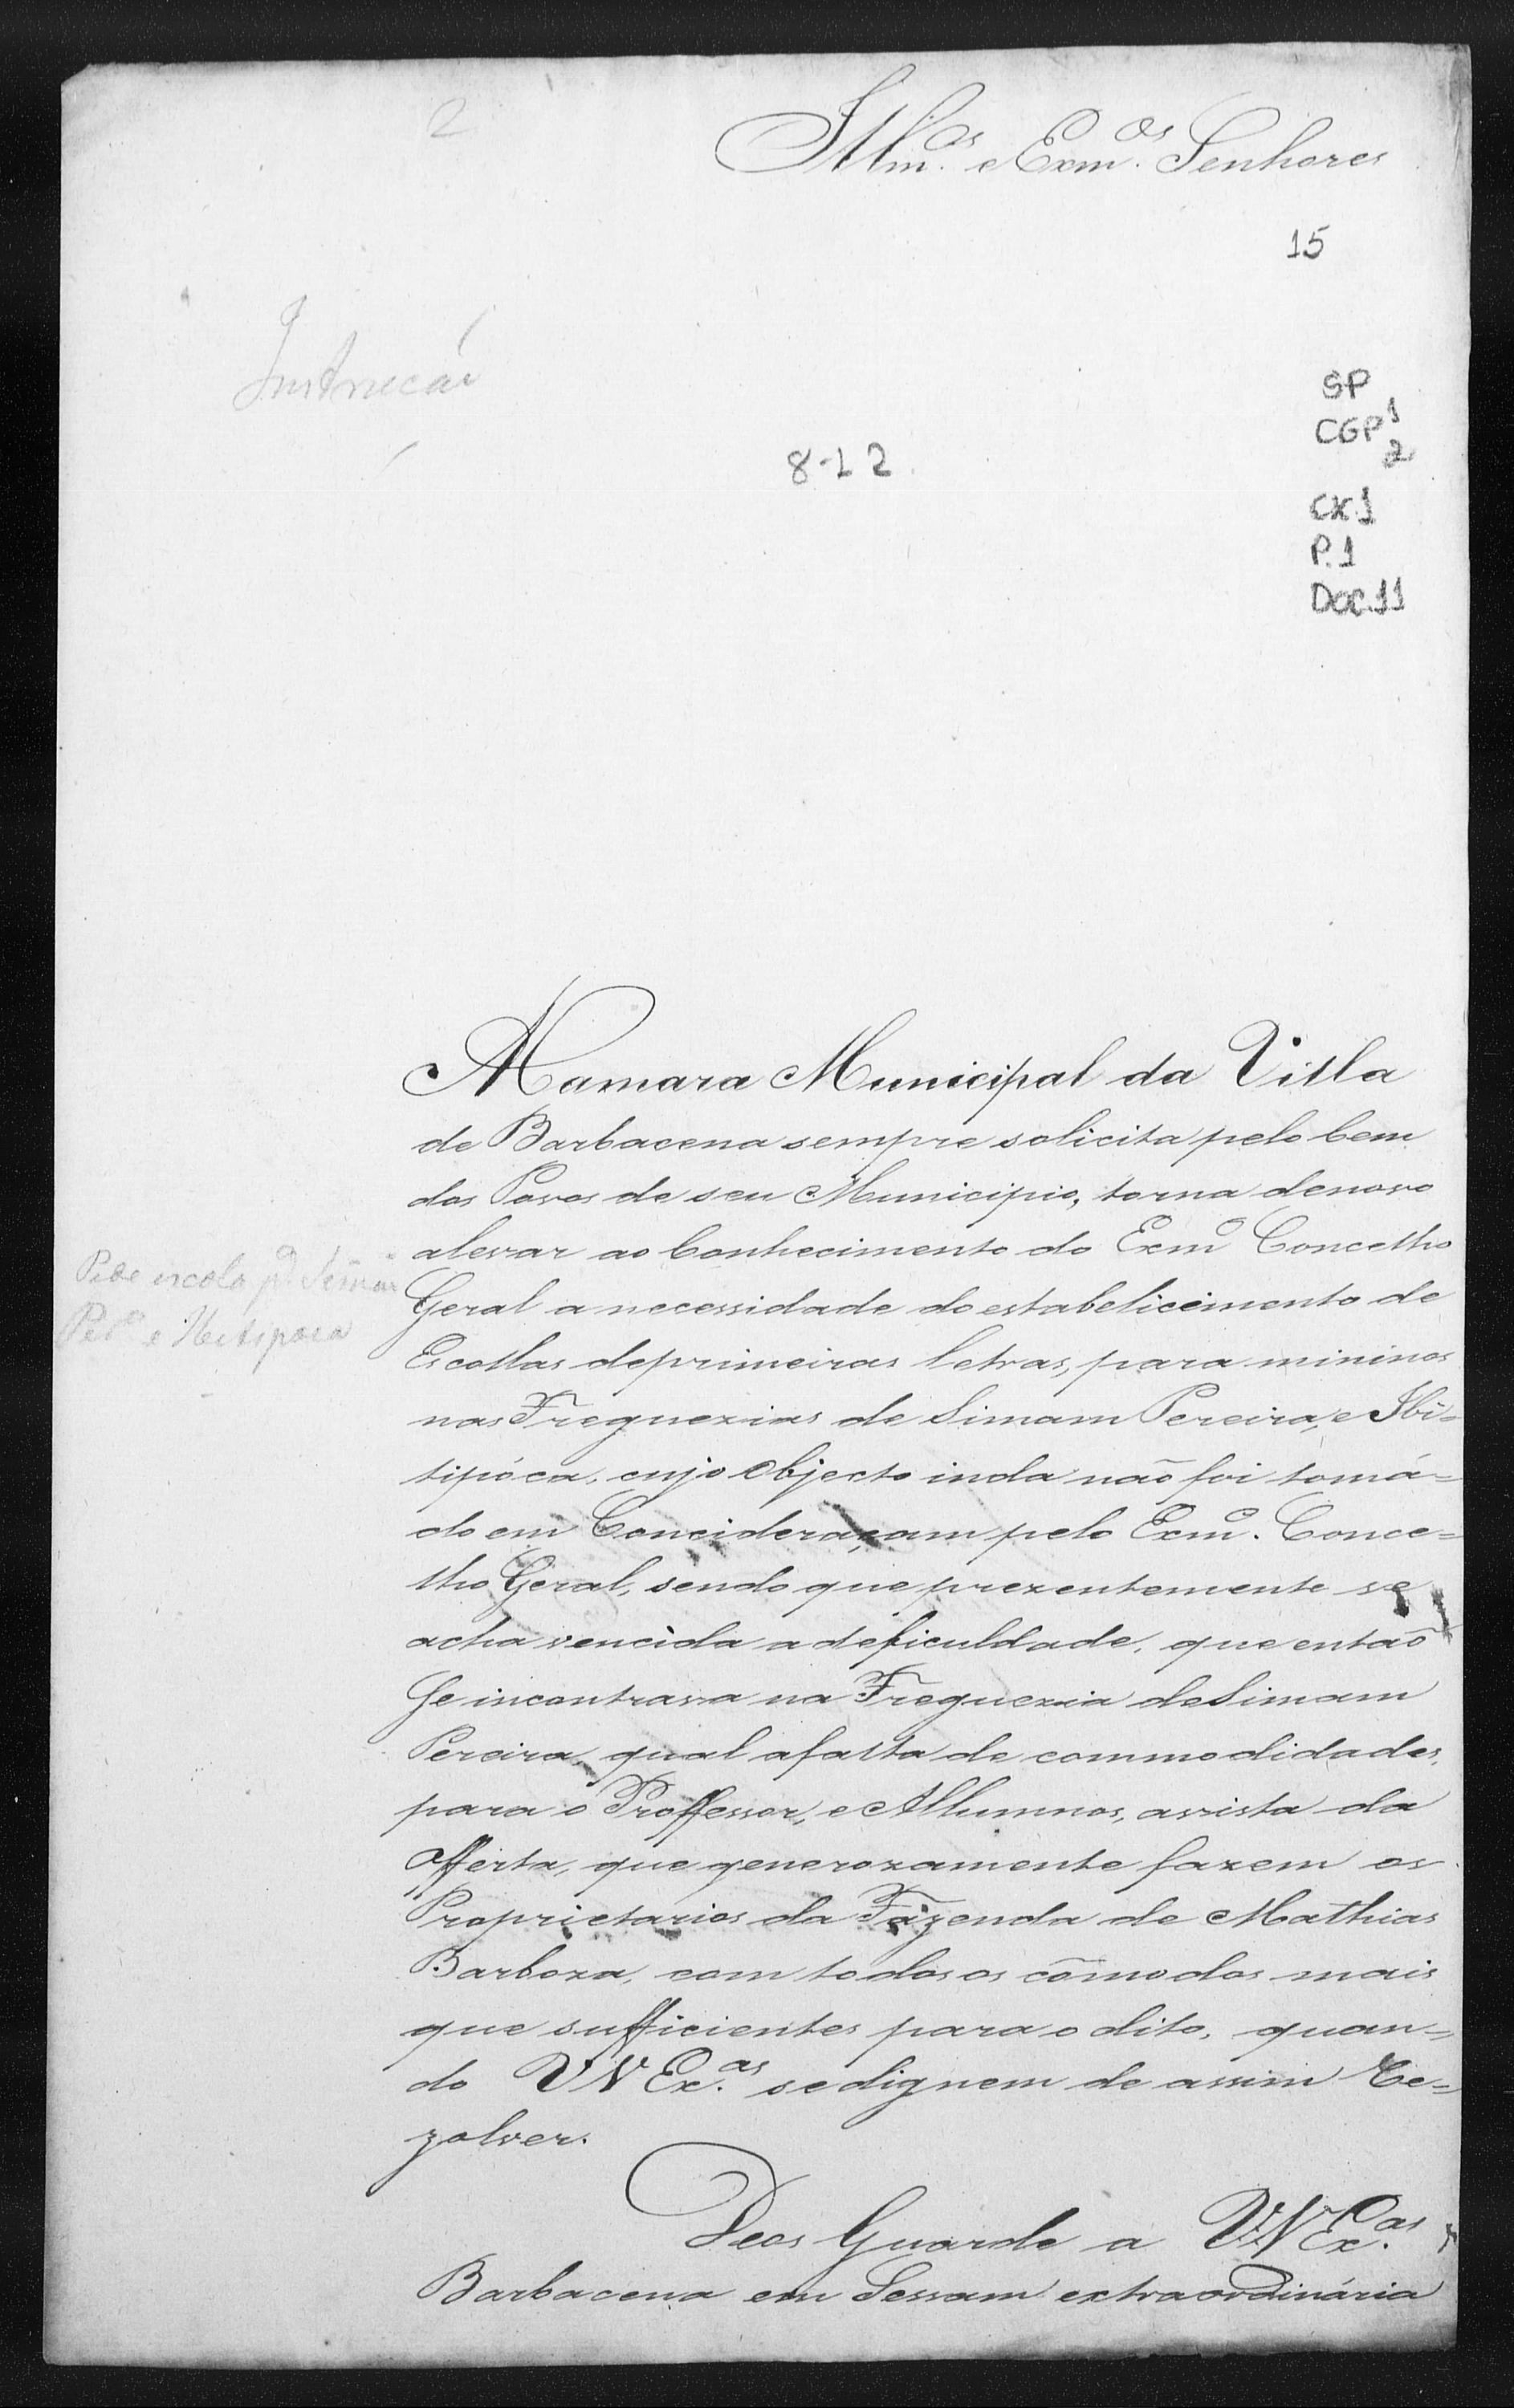 2
Illm.os e Exm.os Senhores
15
Instrucão
SP
CGP 1
2
8-12
CX.1
P.1
DOC.11
A Camara Municipal da Villa
de Barbacena sempre solicita pelo bem
dos Povos de seu Municipio, torna denovo
alevar ao Conhecimento do Exm.o Concelho
Pede escola p.a Simão
Geral a necessidade do estabelicimento de
Per.a e Ibitipoca
Escollas deprimeiras letras, para mininos
nas Freguezias de Simam Pereira, e Ibi=
tipóca, cujo Objecto inda não foi tomá=
do em Concideraçam pelo Exm.o Conce=
lho Geral, sendo que prezentemente se
acha vencida a deficuldade, que então
Se incontrava na Freguezia deSimam
Pereira, qual afalta de commodidades,
para o Proffessor, e Allumnos, avista da
Offerta, que generozamente fazem os
Proprietarios da Fazenda de Mathias
Barboza, com todos os cõmodos mais
que sufficientes para o dito, quan=
do VV Ex.as sedignem de assim Re=
zolver.
Deos Guarde a VV Ex.as
Barbacena em Sessam extraordinária